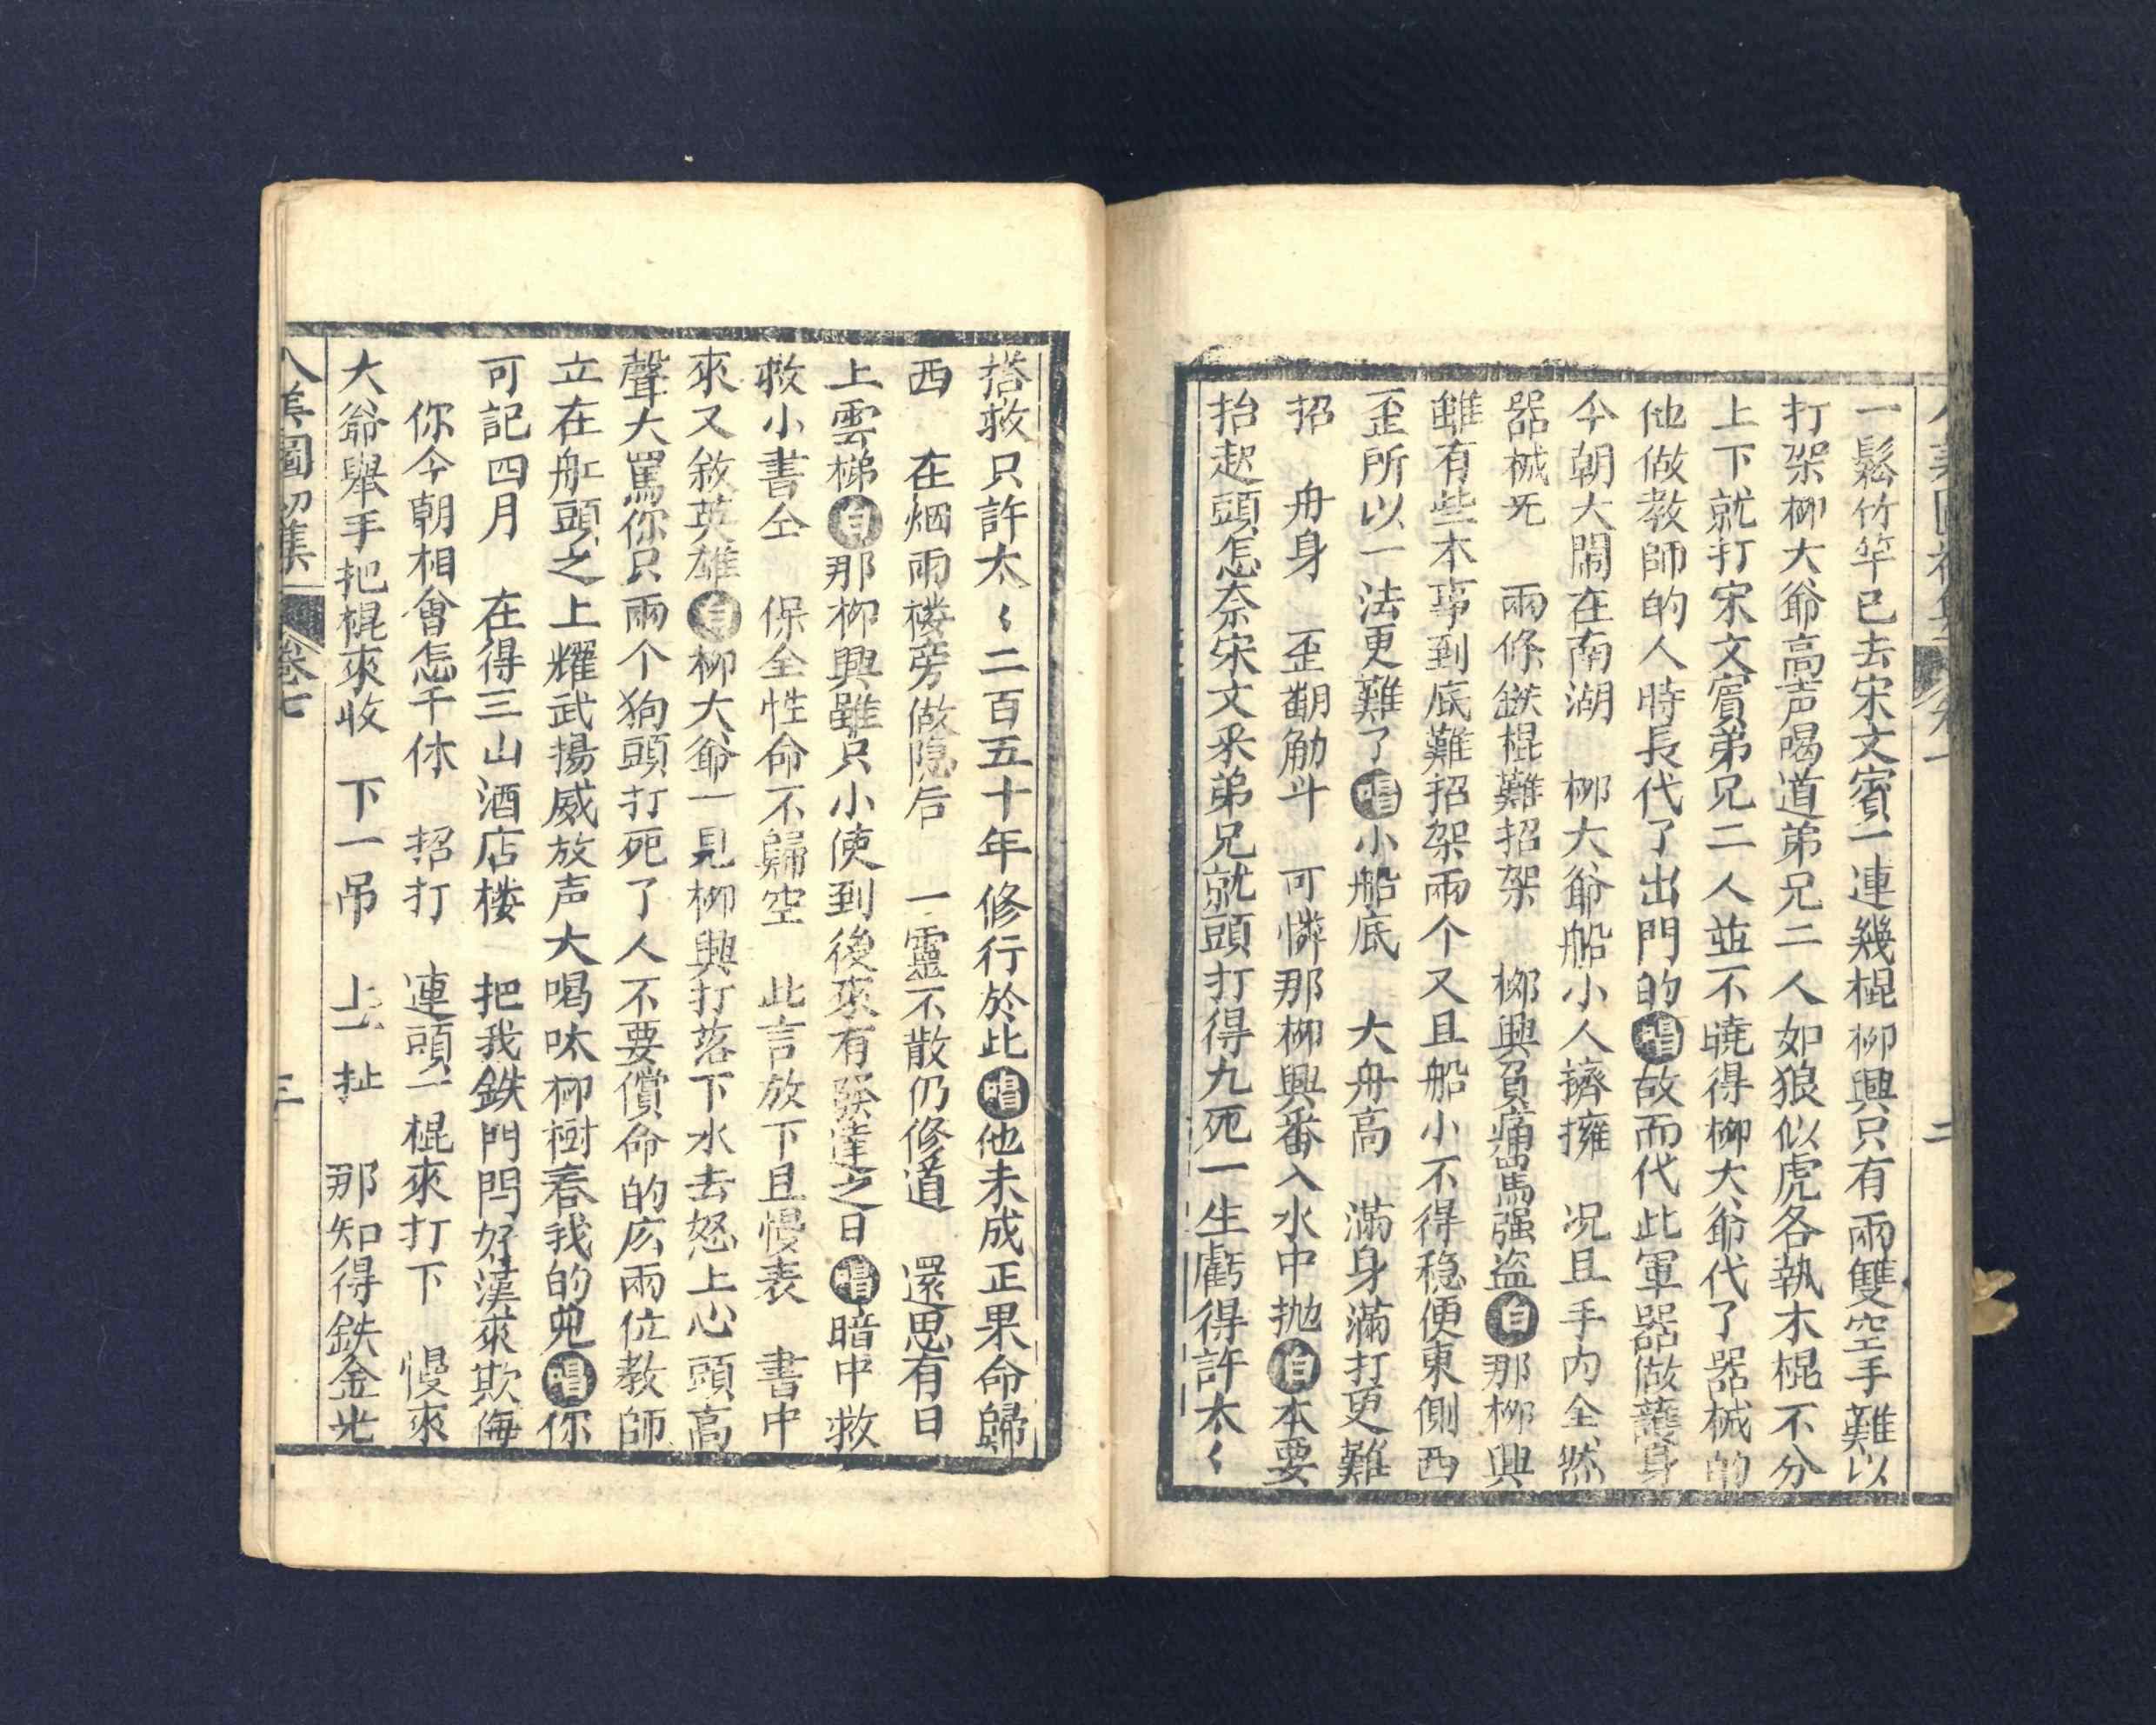 一鬆竹竿已去宋文賓一連幾棍柳興只有兩雙空手難以
打架柳大爺高声喝道弟兄二人如狼似虎各執木棍不分
上下就打宋文賓弟兄二人並不曉得柳大爺代了器械的
他做教師的人時長代了出門的唱故而代此軍器做護身
今朝大鬧在南湖 柳大爺船小人擠擁 况且手内全然
器械旡 兩條鉄棍難招架 柳興負痛罵强盗白那柳興
雖有些本事到底難招架兩个又且船小不得稳便東側西
歪所以一法更難了唱小船底 大舟高 滿身滿打更難
招 舟身 歪翻觔斗 可憐那柳興番入水中抛白本要
抬起頭怎奈宋文采弟兄就頭打得九死一生虧得許太〻
搭救只許太〻二百五十年修行於此唱他未成正果命歸
西 在烟雨楼旁做隐后 一靈不散仍修道 還思有日
上雲梯白那柳興雖只小使到後來有發達之日唱暗中救
救小書仝 保全性命不歸空 此言放下且慢表 書中
來又敘英雄白柳大爺一見柳興打落下水去怒上心頭高
聲大罵你只兩个狗頭打死了人不要償命的庅兩位教師
立在舡頭之上耀武揚威放声大喝呔柳樹春我的兇唱你
可記四月 在得三山酒店楼 把我鉄門閂好漢來欺侮
你今朝相會怎干休 招打 連頭一棍來打下 慢來
大爺舉手把棍來收 下一吊 上一扯 那知得鉄金光
八美圖初集 卷七 三